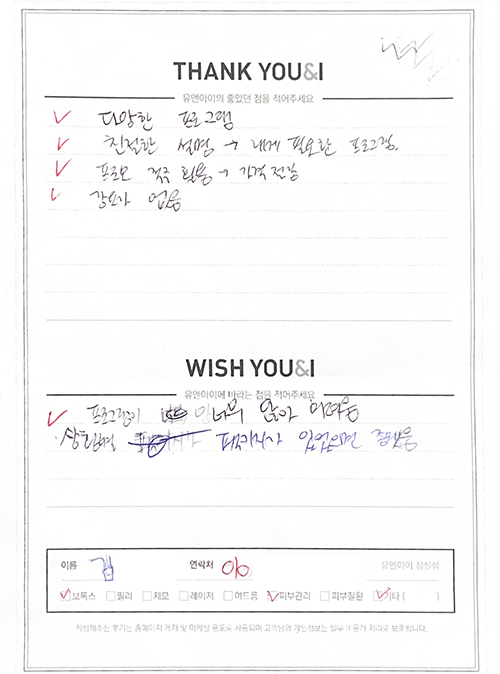 THANK YOU&I
유앤아이의 좋았던 점을 적어주세요
다양한 프로그램
친절한 설명 → 내게 필요한 프로그램.
프로모 적극 활용 → 가격 절감
강요가 없음
WISH YOU&I
유앤아이에 바라는 점을 적어주세요
프로그램이 너무 많아 어려움
패키지가 있었으면 좋겠음
이름 김 연락처 010 유앤아이 잠실점
보톡스 필러 제모 레이저 여드름 피부관리 피부질환 기타 ( )
작성해주신 후기는 홈페이지 게재 및 마케팅 용도로 사용되며 고객님의 개인정보는 일부 비공개 처리로 보호됩니다.